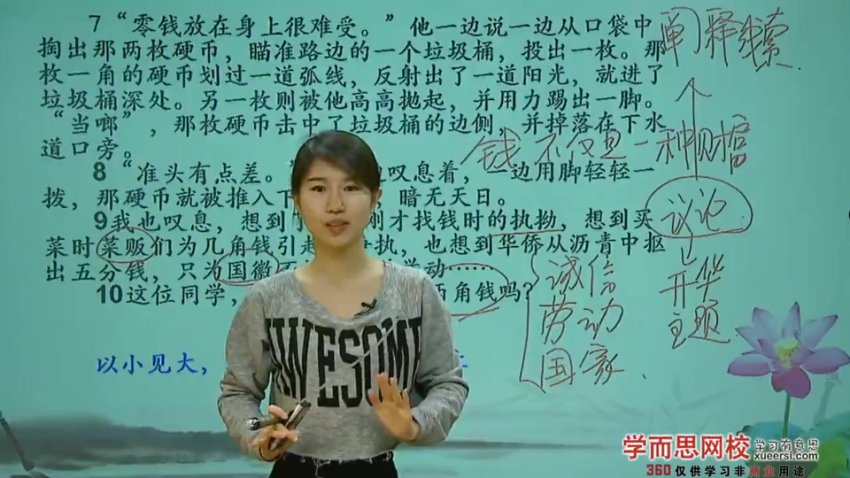 7 “零钱放在身上很难受。”他一边说一边从口袋中
掏出那两枚硬币，瞄准路边的一个垃圾桶，投出一枚。那
枚一角的硬币划过一道弧线，反射出了一道阳光，就进了
垃圾桶深处。另一枚则被他高高抛起，并用力踢出一脚。
“当啷”，那枚硬币击中了垃圾桶的边侧，并掉落在下水
道口旁。
8 “准头有点差。” 叹息着， 边用脚轻轻一
拨，那硬币就被推入下 暗无天日。
9我也叹息，想到 刚才找钱时的执拗，想到买
菜时菜贩们为几角钱引起 执，也想到华侨从沥青中抠
出五分钱，只为国徽不
10这位同学， 两角钱吗？
以小见大，
阐释线索
钱 不仅是一种财富
议论
开华
主题
诚信
劳动
国家
AWESOME
学而思网校 学习有意思
xueersi.com
360仅供学习非商业用途